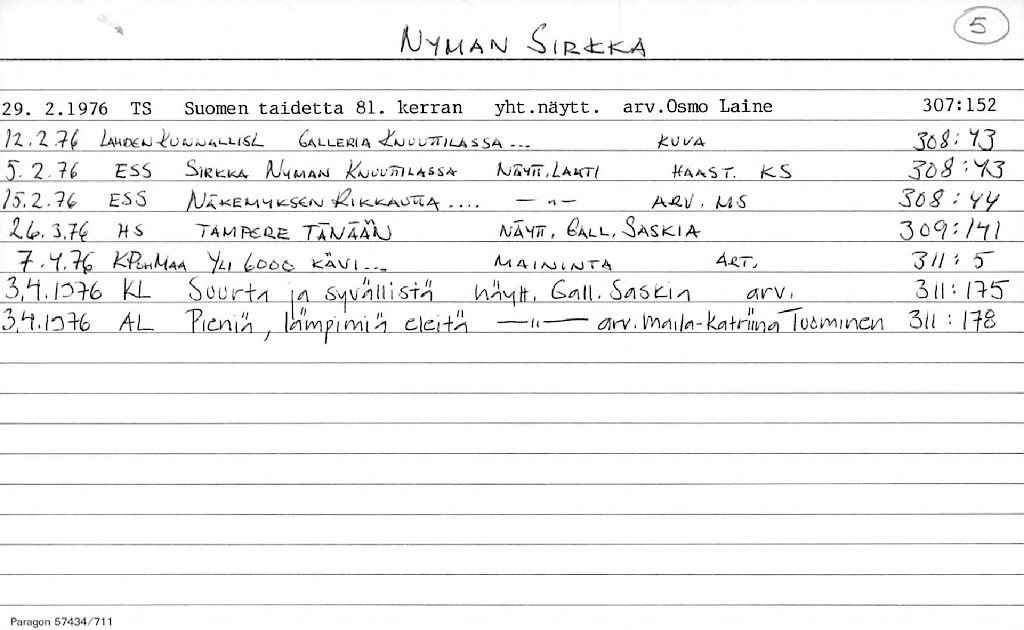 NYMAN SIRKKA 5
29. 2.1976 TS Suomen taidetta 81. kerran yht.näytt. arv.Osmo Laine 307:152
12.2.76 LAHDEN KUNNALLISL GALLERIA KNUUTTILASSA ... KUVA 308:43
5.2.76 ESS SIRKKA NYMAN KNUUTTILASSA NÄYTT, LAHTI HAAST. KS 308:43
15.2.76 ESS NÄKEMYKSEN RIKKAUTTA .... —"— ARV. MS 308:44
26.3.76 HS TAMPERE TÄNÄÄN NÄYTT, GALL. SASKIA 309:141
7.4.76 KPOHMAA YLI 6000 KÄVI... MAININTA ART, 311:5
3.4.1976 KL Suurta ja syvällistä näytt. Gall. Saskia arv. 311:175
3.4.1976 AL Pieniä, lämpimiä eleitä —"— arv. Maila-Katriina Tuominen 311:178
Paragon 57434/711